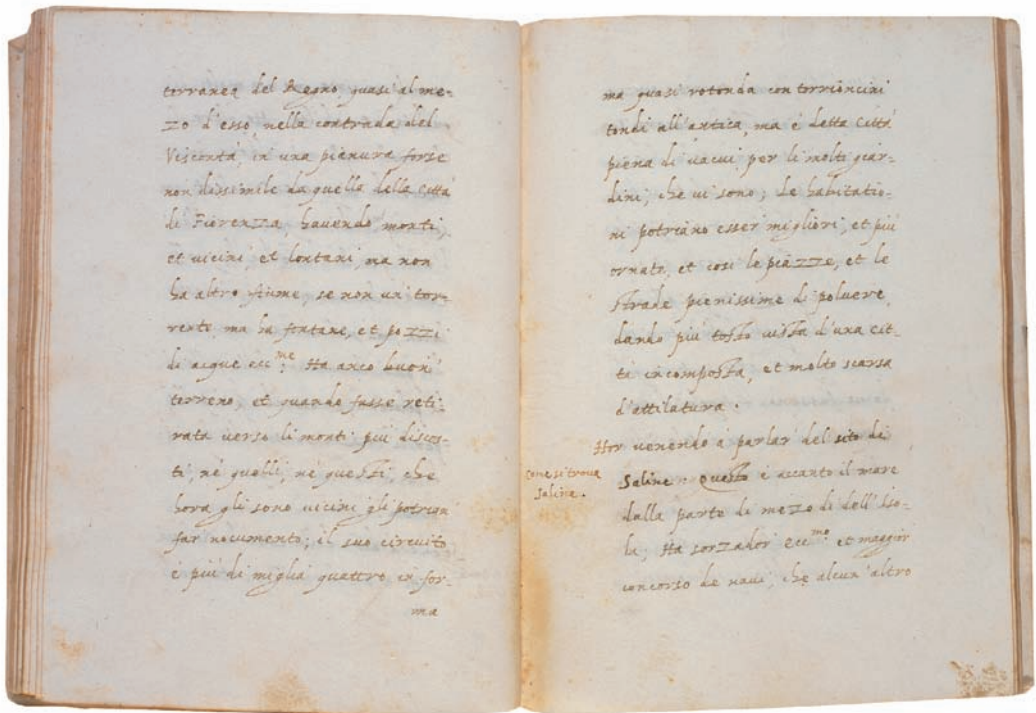 terranea del Regno, quasi al me-
zo d'esso, nella contrada del
Viscontà, in una pianura forse
non dissimile da quella della Città
di Fiorenza, havendo monti,
et vicini, et lontani, ma non
ha altro fiume, se non un tor-
rente, ma ha fontane, et pozzi
di acque ecc.me Ha anco buon
terreno, et quando fusse reti-
rata verso li monti più discos-
ti, nè quelli, nè questi, che
hora gli sono vicini gli potrian
far nocumento; il suo circuito
è più di miglia quattro in for-
ma
ma quasi rotonda con torrioncini
tondi all'antica, ma è detta Città
piena di vacui per li molti giar-
dini, che vi sono; Le habitatio-
ni potriano esser migliori, et più
ornate, et così le piazze, et le
strade pienissime di polvere,
dando più tosto vista d'una cit-
tà incomposta, et molto scarsa
d'attilatura.
Hor venendo à parlar del sito di
Come si trova
Saline.
Saline. Questo è accanto il mare
dalla parte di mezo dì dell'Iso-
la; Ha sorzador ecc.mo et maggior
concorso de navi, che alcun'altro